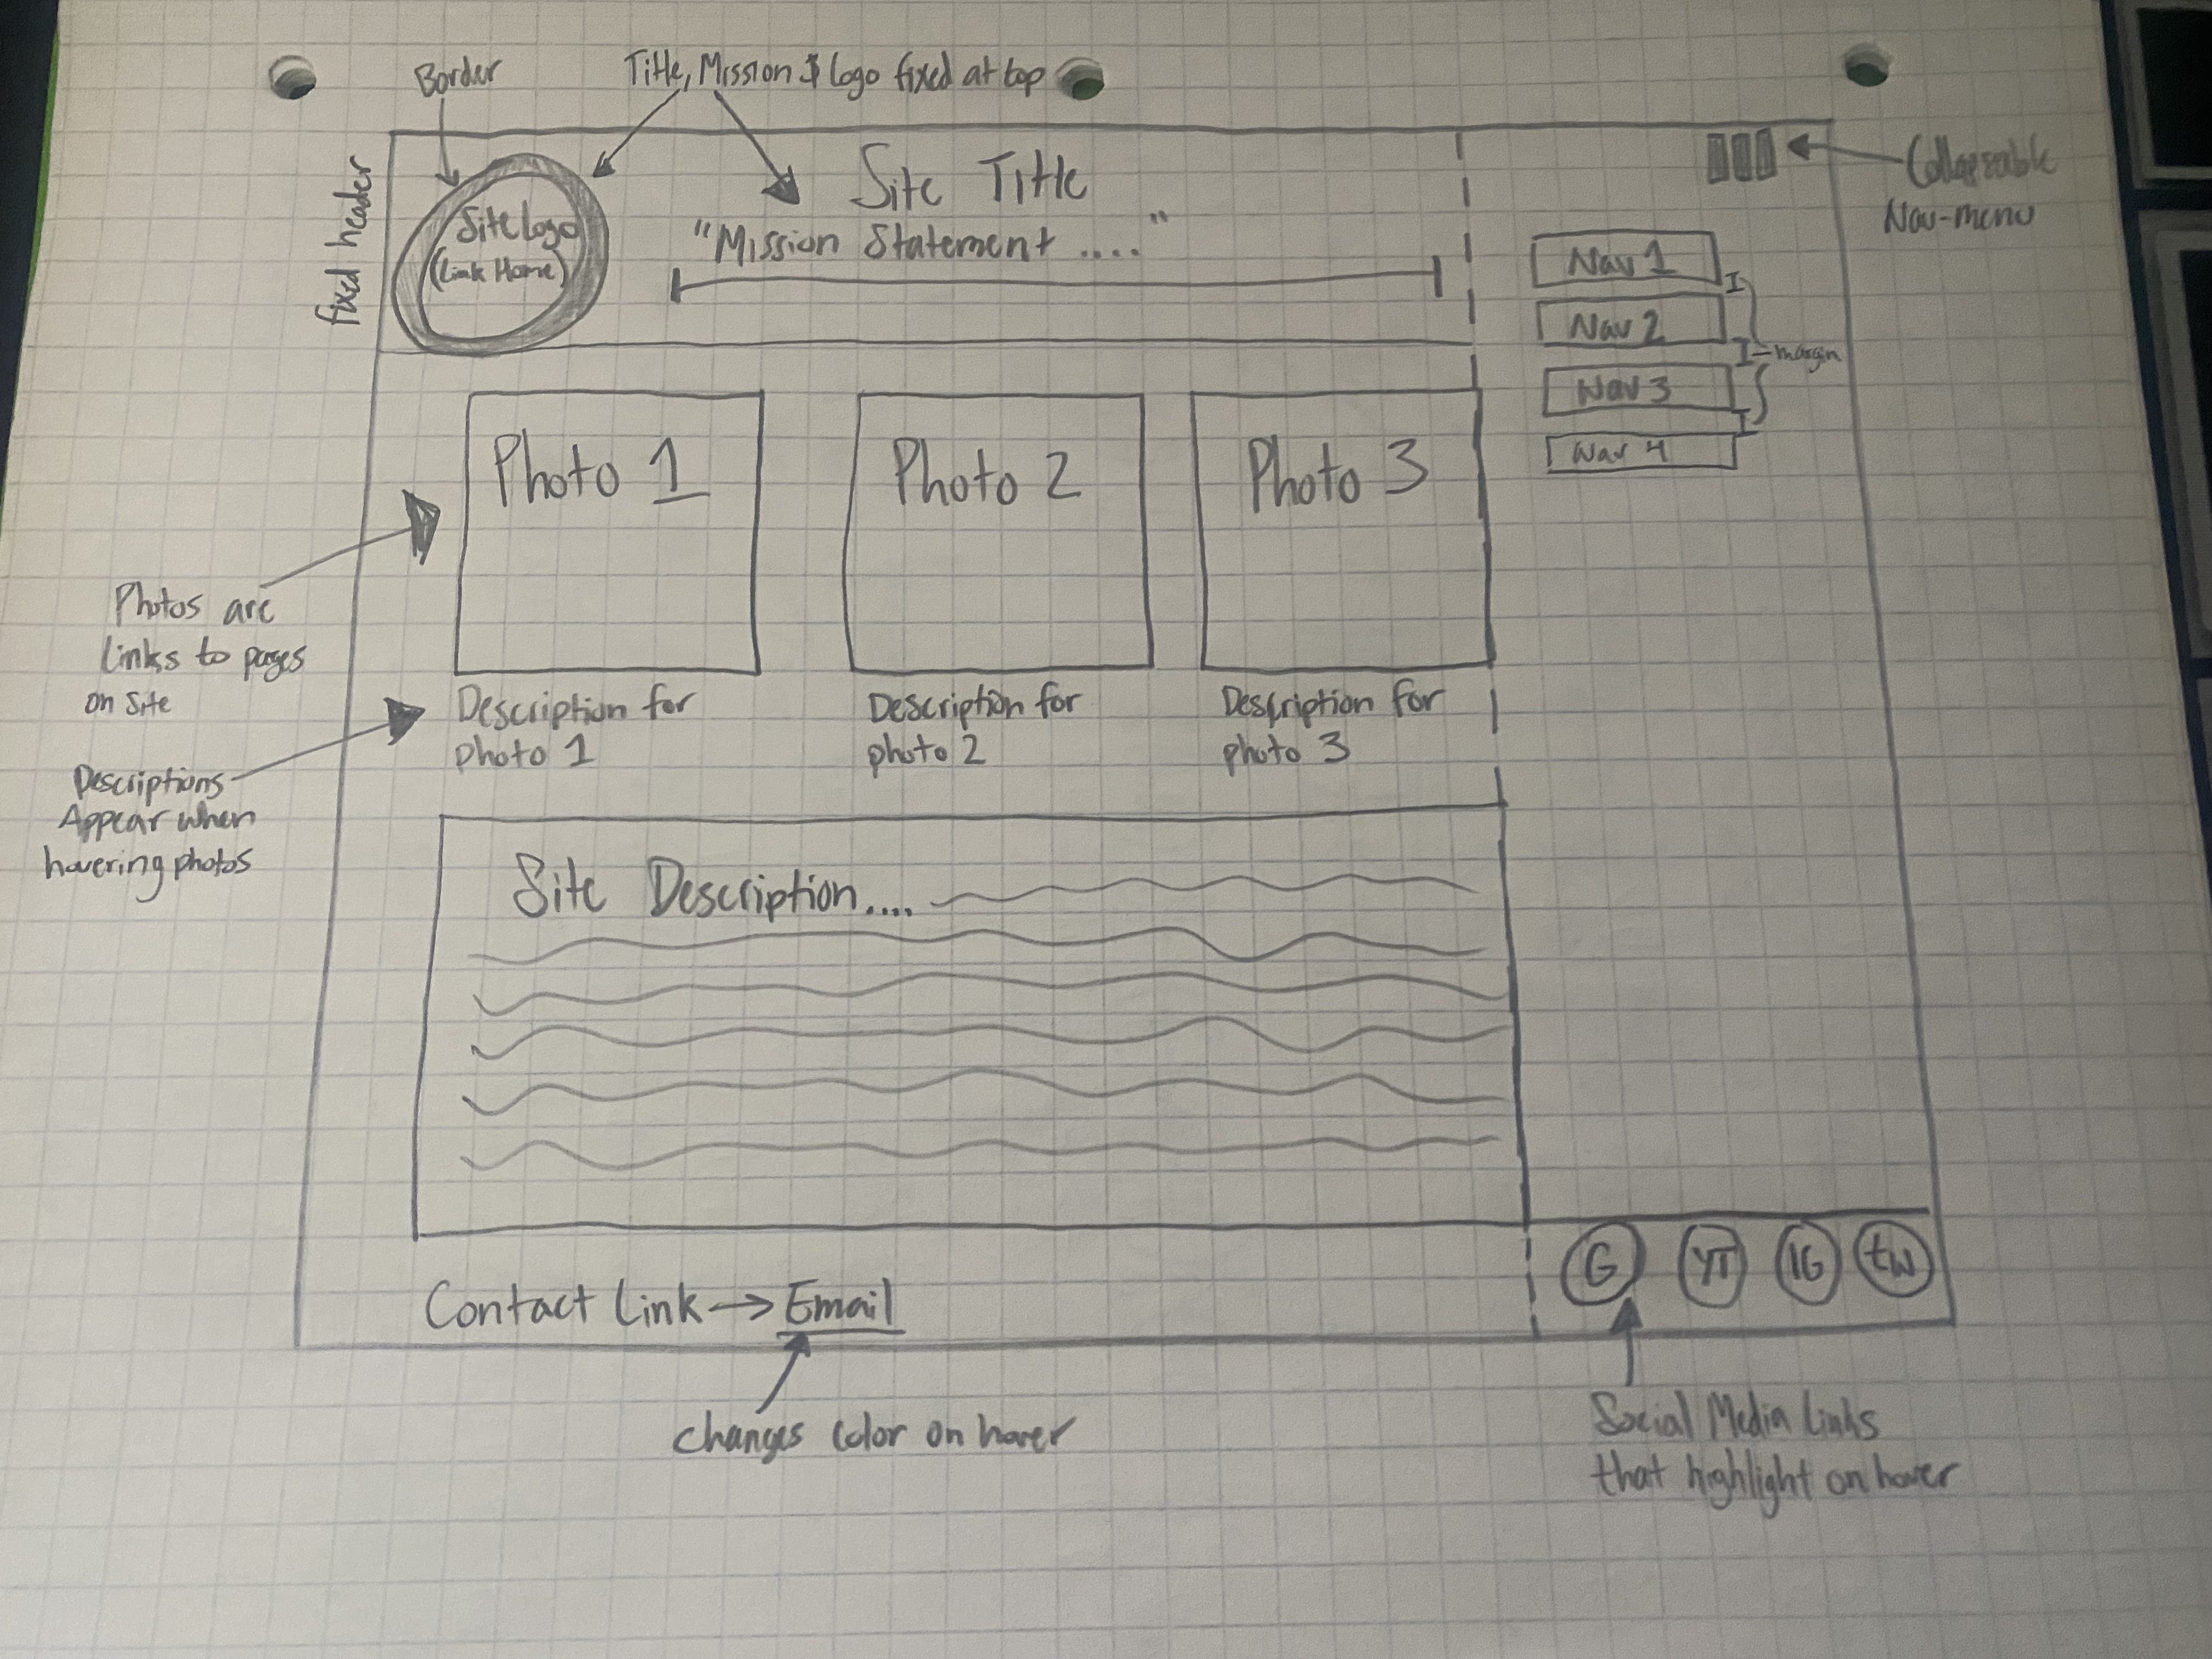 Border
Title, Mission & Logo fixed at top
fixed header
Site Logo
(Link Home)
Site Title
"Mission Statement ...."
Collapseable
Nav-menu
Nav 1
Nav 2
margin
Nav 3
Nav 4
Photo 1
Photo 2
Photo 3
Photos are
Links to pages
on Site
Description for
photo 1
Description for
photo 2
Description for
photo 3
Descriptions
Appear when
hovering photos
Site Description....
Contact Link → Email
G
YT
IG
tw
changes color on hover
Social Media Links
that highlight on hover